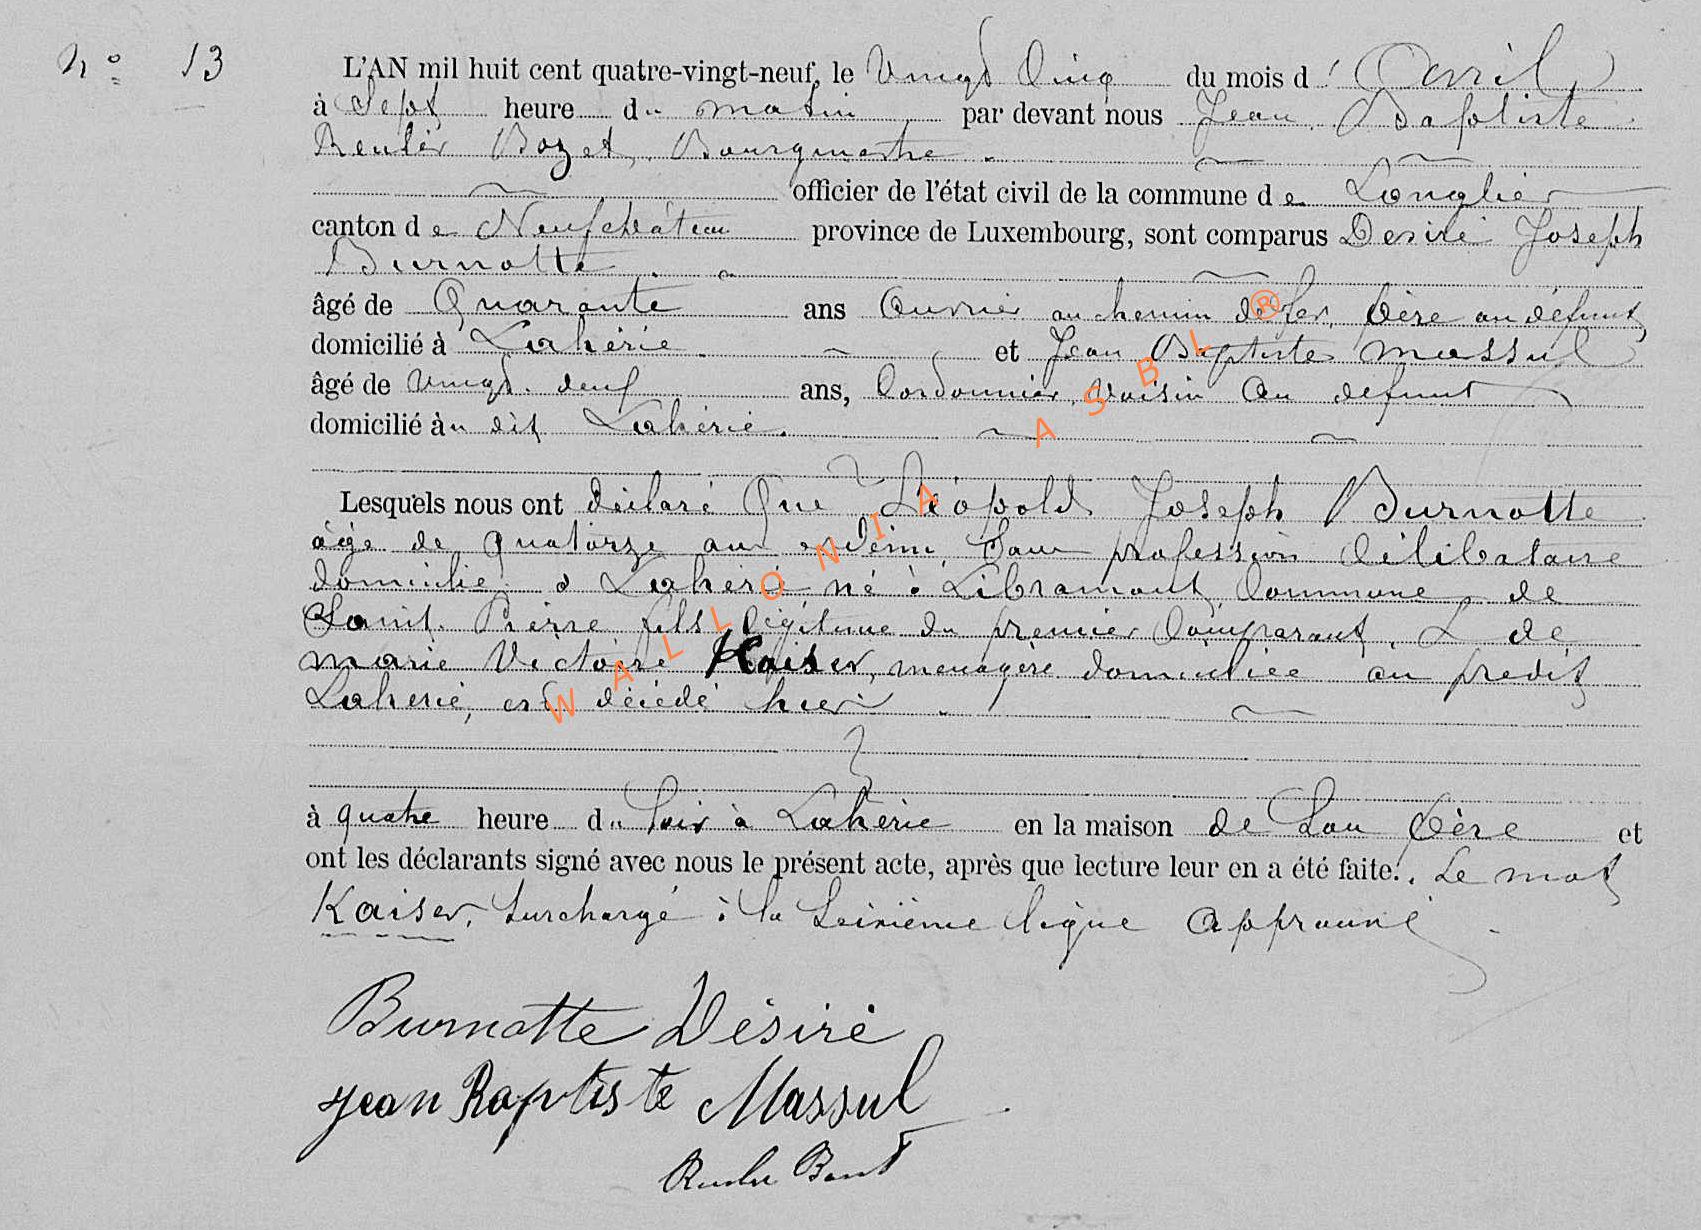 N° 13
L'AN mil huit cent quatre-vingt-neuf, le Vingt Cinq du mois d' Avril
à Sept heure du matin par devant nous Jean Baptiste
Reuler Bozet, Bourgmestre
officier de l'état civil de la commune de Longlier
canton de Neufchâteau province de Luxembourg, sont comparus Desiré Joseph
Burnotte
âgé de Quarante ans Ouvrier au chemin de fer, Père au défunt,
domicilié à Lahérie et Jean Baptiste Massul
âgé de vingt neuf ans, Cordonnier, Voisin au défunt
domicilié au dit Lahérie.
Lesquels nous ont déclaré Que Léopold Joseph Burnotte
agé de Quatorze ans et demi Sans profession Célibataire
domicilié à Lahérie né à Libramont Commune de
Saint Pierre fils légitime du premier Comparant, & de
Marie Victoire Kaiser, menagère domiciliée au predit
Laherie, est décédé hier
à quatre heure du Soir à Lahérie en la maison de Son Père et
ont les déclarants signé avec nous le présent acte, après que lecture leur en a été faite. Le mot
Kaiser, surchargé à la Seizième ligne approuvé
Burnotte Désiré
Jean Baptiste Massul
WALLONIA ASBL ®